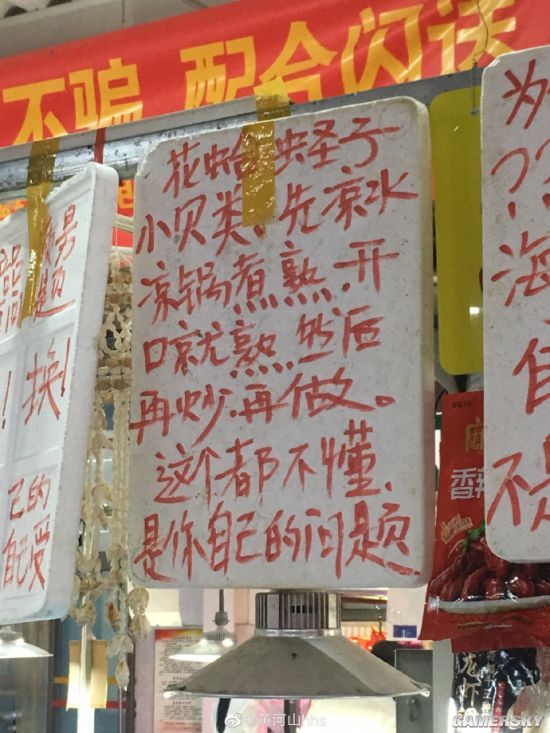 不骗 配合闪送
花蛤 蛏子
小贝类,先凉水
凉锅煮熟,开
口就熟,然后
再炒.再做。
这个都不懂,
是你自己的问题
号
问题
换!
己的
自己受
为
??
海
自
不是
香辣
龙虾
@黄河山hhs
GAMERSKY